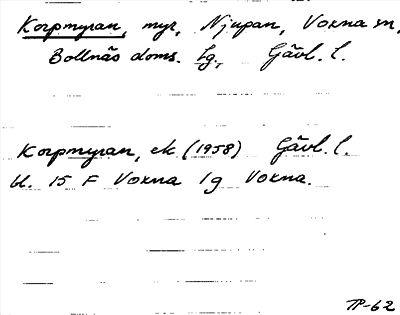 Korpmyran, myr, Njupan, Voxna sn,
Bollnäs doms. lg., Gävl. l.
Korpmyran, ek (1958) Gävl. l.
bl. 15 F Voxna 1g Voxna.
TP-62